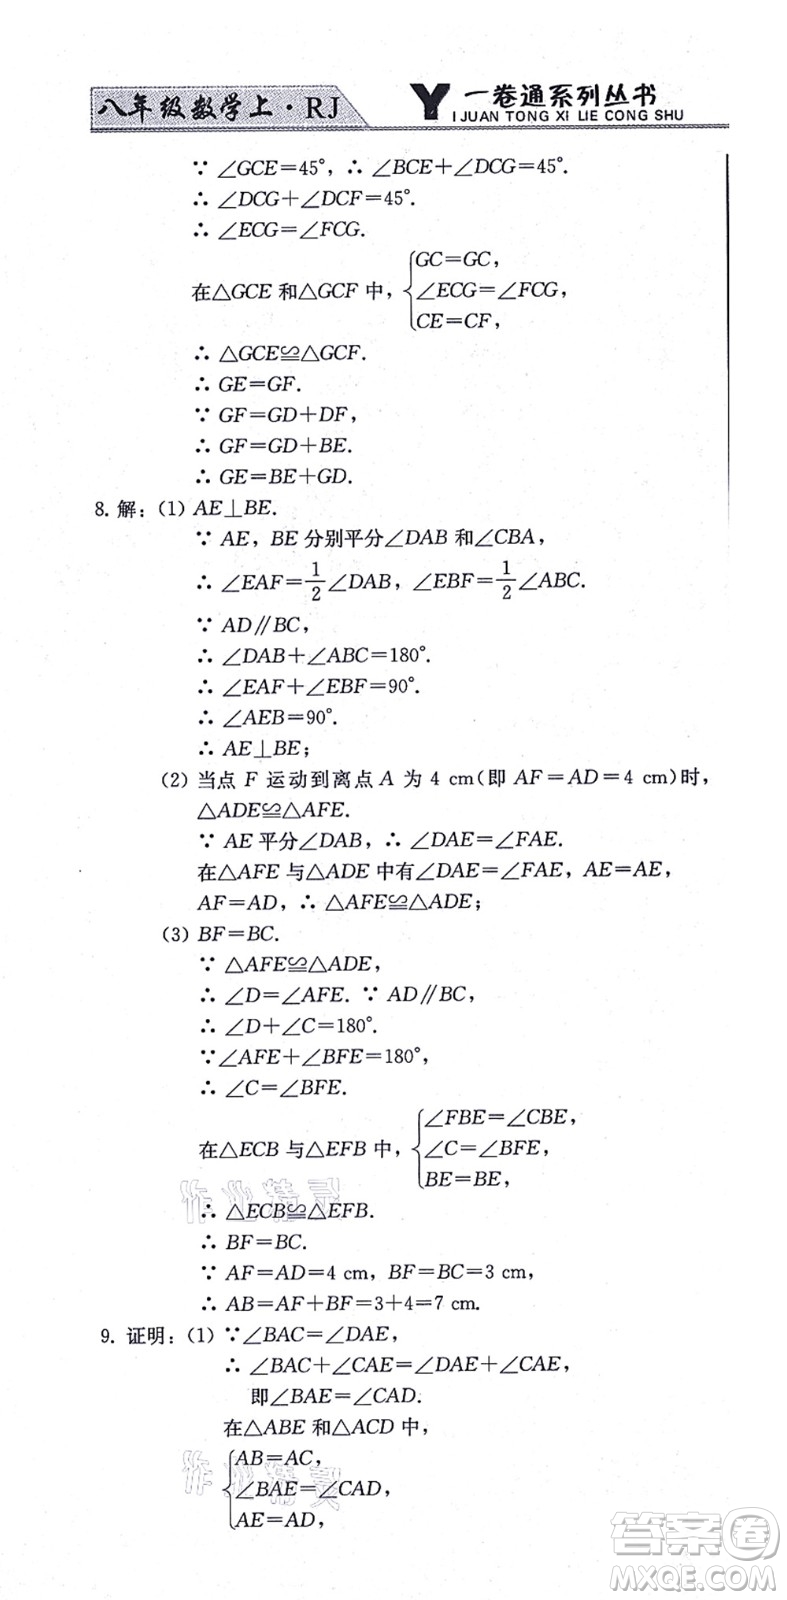 八年级数学上·RJ
Y 一卷通系列丛书
I JUAN TONG XI LIE CONG SHU
∵ ∠GCE=45°,∴ ∠BCE+∠DCG=45°.
∴ ∠DCG+∠DCF=45°.
∴ ∠ECG=∠FCG.
在△GCE 和△GCF 中,{GC=GC,
∠ECG=∠FCG,
CE=CF,
∴ △GCE≌△GCF.
∴ GE=GF.
∵ GF=GD+DF,
∴ GF=GD+BE.
∴ GE=BE+GD.
8. 解:(1) AE⊥BE.
∵ AE,BE 分别平分∠DAB 和∠CBA,
∴ ∠EAF=1/2∠DAB,∠EBF=1/2∠ABC.
∵ AD∥BC,
∴ ∠DAB+∠ABC=180°.
∴ ∠EAF+∠EBF=90°.
∴ ∠AEB=90°.
∴ AE⊥BE;
(2) 当点 F 运动到离点 A 为 4 cm(即 AF=AD=4 cm)时,
△ADE≌△AFE.
∵ AE 平分∠DAB,∴ ∠DAE=∠FAE.
在△AFE 与△ADE 中有∠DAE=∠FAE,AE=AE,
AF=AD,∴ △AFE≌△ADE;
(3) BF=BC.
∵ △AFE≌△ADE,
∴ ∠D=∠AFE. ∵ AD∥BC,
∴ ∠D+∠C=180°.
∵∠AFE+∠BFE=180°,
∴ ∠C=∠BFE.
在△ECB 与△EFB 中,{∠FBE=∠CBE,
∠C=∠BFE,
BE=BE,
∴ △ECB≌△EFB.
∴ BF=BC.
∵ AF=AD=4 cm,BF=BC=3 cm,
∴ AB=AF+BF=3+4=7 cm.
9. 证明:(1) ∵∠BAC=∠DAE,
∴ ∠BAC+∠CAE=∠DAE+∠CAE,
即∠BAE=∠CAD.
在△ABE 和△ACD 中,
{AB=AC,
∠BAE=∠CAD,
AE=AD,
答案圈
MXQE.COM